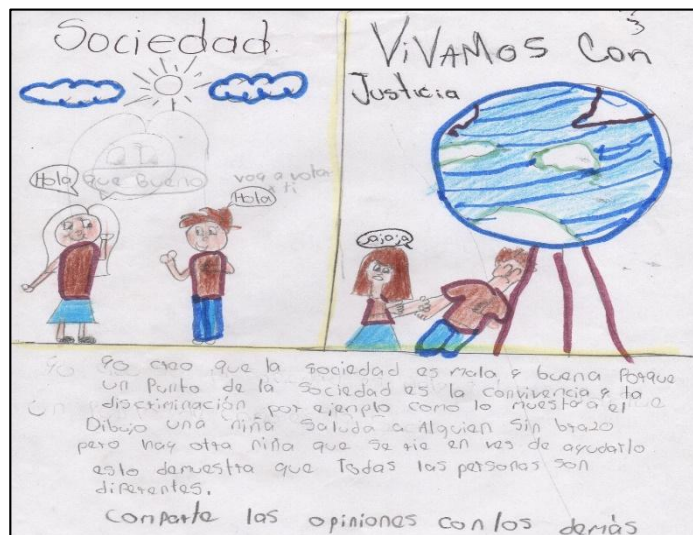 Sociedad.
Hola
Que Bueno
voy a votar
x ti
Hola
3
ViVAMOS Con
Justicia
jajaja
Yo creo que la sociedad es mala y buena Porque
un Punto de la Sociedad es la convivencia y la
discriminación por ejemplo como lo muestra el
Dibujo una niña Saluda a Alguien Sin brazo
pero hay otra niña que Se rie en ves de ayudarlo
esto demuestra que Todas las personas son
diferentes.
Comparte las opiniones con los demás